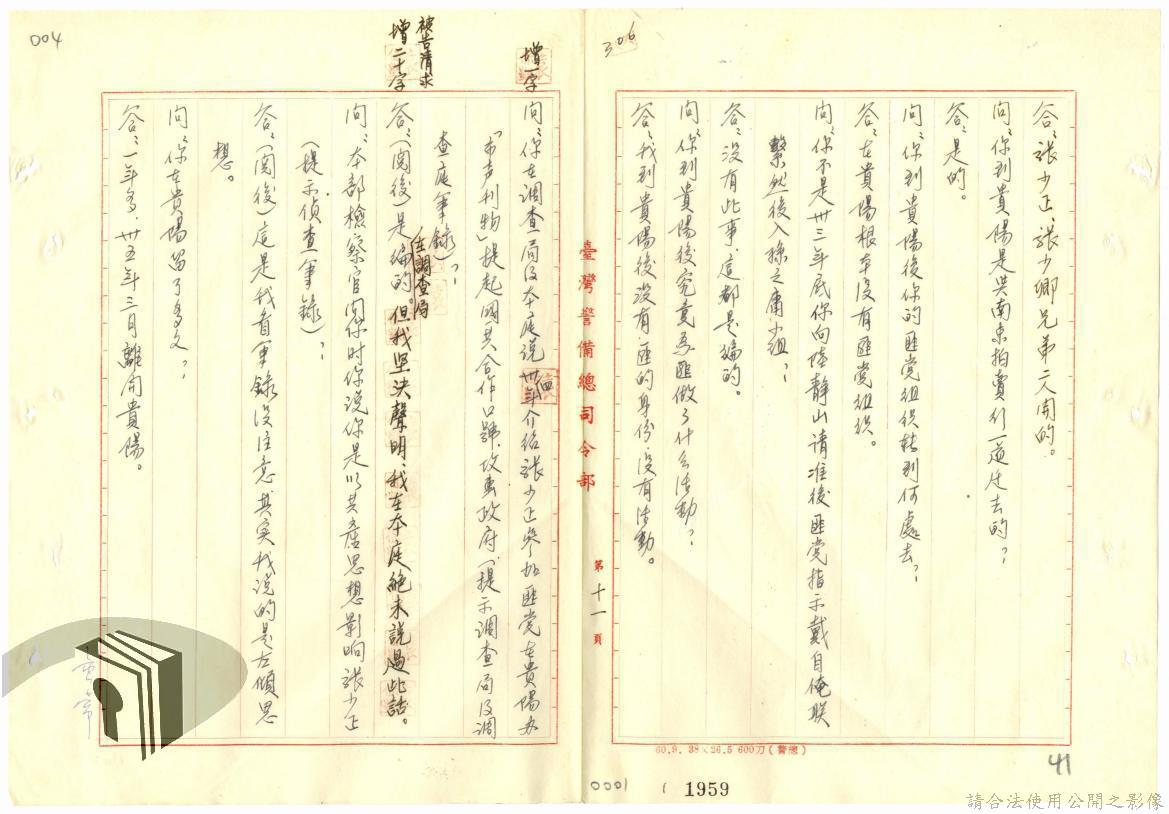 306
答：張少正、張少卿兄弟二人開的。
問：你到貴陽是吳南東拍賣行一道迁去的？
答：是的。
問：你到貴陽後你的匪党組织转到何處去？
答：在貴陽根本没有匪党組织。
問：你不是卅三年底你向陸静山请准後匪党指示戴自俺联
繫然後入穆之庸小組？
答：没有此事，這都是编的。
問：你到貴陽後究竟為匪做了什么活動？
答：我到貴陽後没有匪的身份，没有活動。
41
臺灣警備總司令部
第十一頁
60.9. 38×26.5 600刀(警總)
0001
1959
004
增一字
問：你在調查局及本庭说卅四年介绍張少正参加匪党在貴陽办
「市声刊物」提起國共合作口號，攻击政府（提示調查局及調
查庭筆錄）？
被告请求
增二十字
答：（阅後）是编的。但我坚决聲明，我在本庭絶未説過此話。
在調查局
問：本部檢察官問你时你说你是以共產思想影响張少正
（提示偵查筆錄）？
答：（阅後）這是我看筆錄没注意其实我说的是左傾思
想。
問：你在貴陽留了多久？
答：一年多，卅五年三月離開貴陽。
請合法使用公開之影像